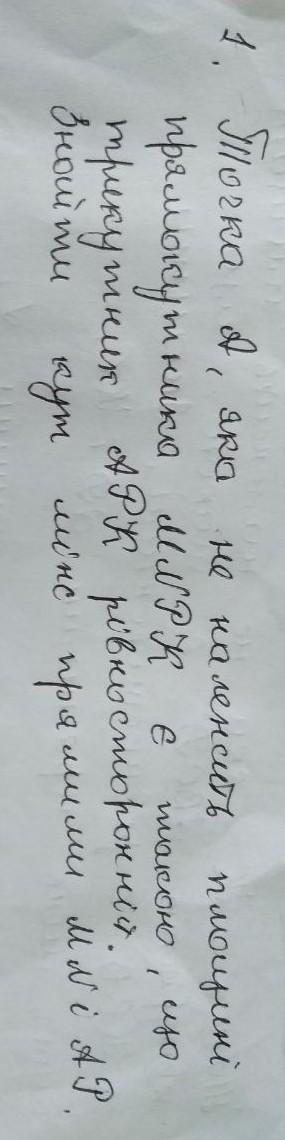 1. Точка А, яка не належить площині
прямокутника MNPK є такою, що
трикутник АРК рівносторонній.
Знайти кут між прямими MN і АР.